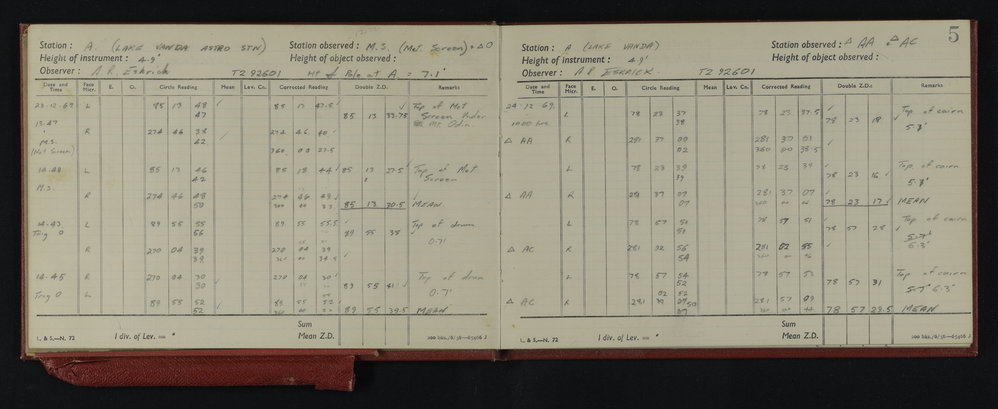 Station : A. (LAKE VANDA ASTRO STN) Station observed : M.S. (Met. Screen) + △ O
Height of instrument : 4.9' Height of object observed :
Observer : A. R. Eskrick T2 92601 Ht of Pole at A = 7.1'
Date and Time Face Micr. E. O. Circle Reading Mean Lev. Co. Corrected Reading Double Z.D. Remarks
23.12.69 L 85 13 48 85 13 47.5 Top of Met
47 85 13 33.75 Screen under
13.47 R 274 46 38 274 46 40 Mt. Odin
M.S. 42
(Met Screen) 360 00 27.5
14.40 L 85 13 46 85 13 44 85 13 27.5 Top of Met
42 Screen
M.S.
R 274 46 48 274 46 49
50 85 13 30.5 MEAN
14.43 L 89 55 55 89 55 55.5 Top of drum
Trig O 56 89 55 38
0.71'
R 270 04 39 270 04 39
39 34.5
14.45 R 270 04 30 270 04 30 Top of drum
30 89 55 41
Trig O L 0.7'
89 55 52 89 55 52
52 89 55 39.5 MEAN
Sum
L. & S.—N. 72 1 div. of Lev. = " Mean Z.D.
5
Station : A (LAKE VANDA) Station observed : △ AA △ AC
Height of instrument : 4.9' Height of object observed :
Observer : A R ESKRICK T2 92601
Date and Time Face Micr. E. O. Circle Reading Mean Lev. Co. Corrected Reading Double Z.D. Remarks
24.12.69. L 78 23 37 78 23 37.5 Top of cairn
1000 hrs. 38 78 23 18
△ AA R 281 37 00 281 37 01
02 360 00 38.5
L 78 23 39 78 23 39 Top of cairn
39 78 23 16
△ AA R 281 37 07 281 37 07 MEAN
07 78 23 17
L 78 57 51 78 57 51 Top of cairn
78 57 28
△ AC R 281 02 56 281 02 55 6.3'
54
L 78 57 54 78 57 53 Top of cairn
52 78 57 31 6.3'
△ AC R 281 281 57 09
78 57 29.5 MEAN
Sum
L. & S.—N. 72 1 div. of Lev. = " Mean Z.D.